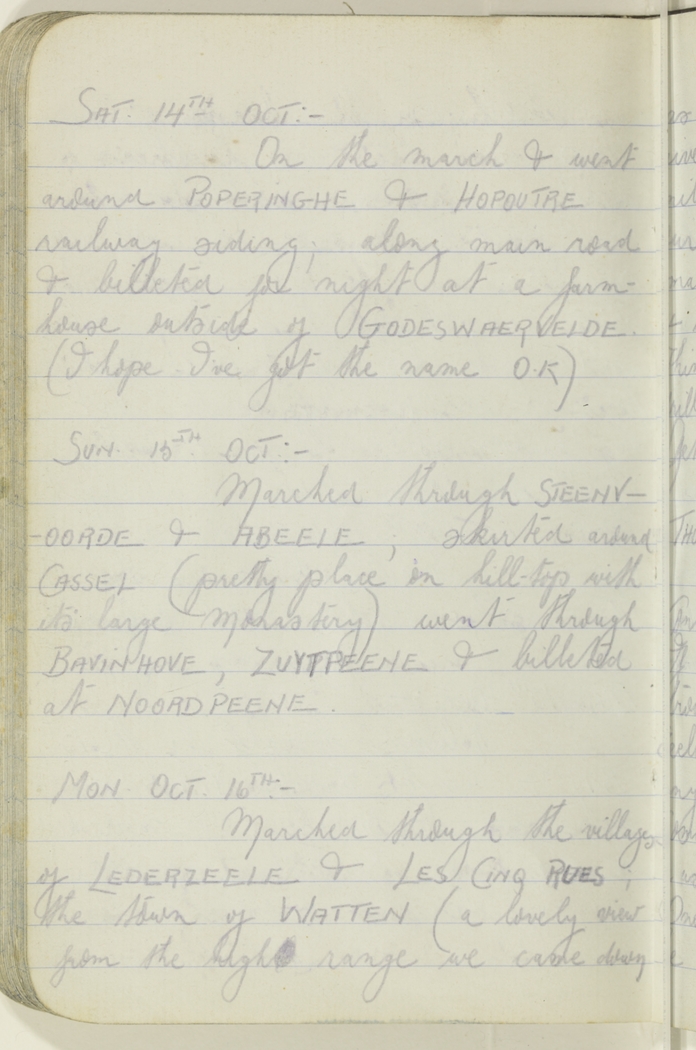 SAT. 14TH OCT:-
On the march & went
around POPERINGHE & HOPOUTRE
railway siding; along main road
& billeted for night at a farm-
house outside of GODESWAERVELDE.
(I hope I've got the name O.K)
SUN. 15TH OCT:-
Marched through STEENV-
-OORDE & ABEELE; skirted around
CASSEL (pretty place on hill-top with
its large monastery) went through
BAVINHOVE, ZUYTPEENE & billeted
at NOORDPEENE.
MON. OCT. 16TH:-
Marched through the villages
of LEDERZEELE & LES CINQ RUES;
the town of WATTEN (a lovely view
from the high range we came down